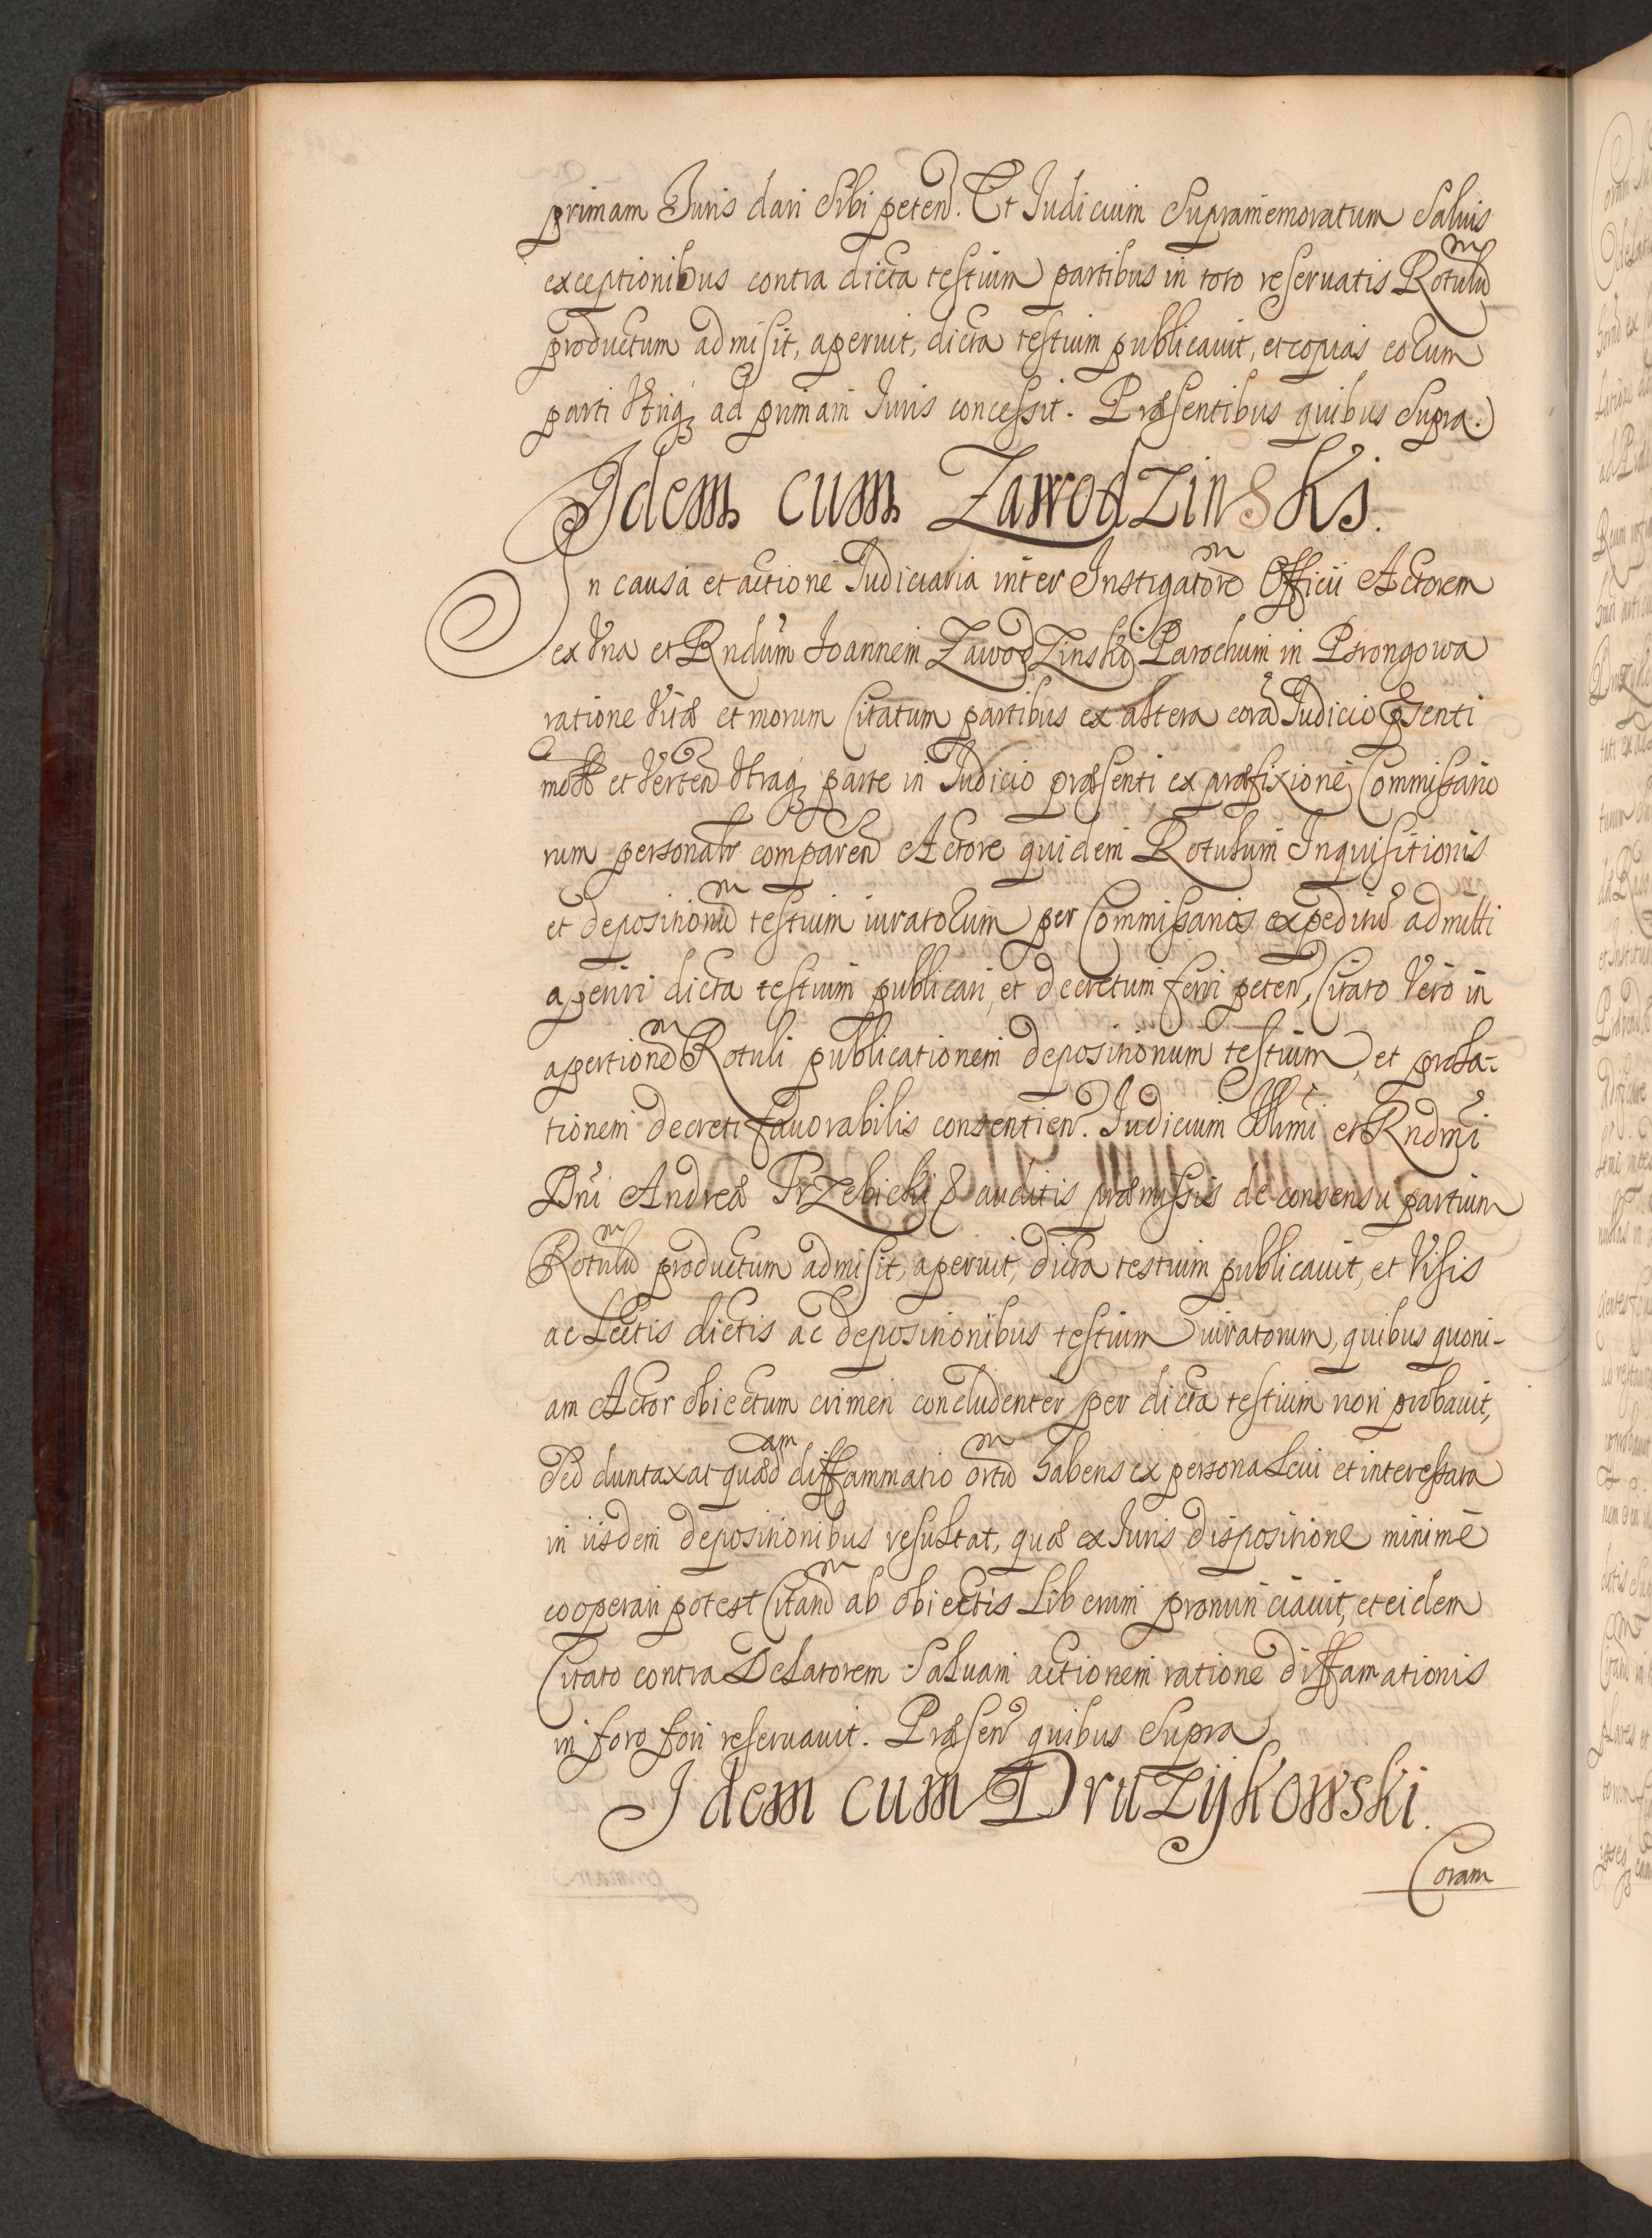 primam Juris dari sibi peten̄d. Et Judicium supramemoratum salvis
exceptionibus contra dicta testium partibus in toto reservatis Rotulu͠m
productum admisit, aperuit, dicta testium publicavit, et copias eorum
parti utriq; ad primam Juris concessit. Præsentibus quibus supra.
Idem cum Zawodzinski.
In causa et actione Judiciaria inter Instigatorem Officii Actorem
ex una et Rndūm Joannem Zawodzinski Parochum in Pstrongowa
ratione vitæ et morum Citatum partibus ex altera corā Judicio pñsenti
et verten̄ utraq; parte in Judicio præsenti ex præfixione Commissario
rum personalr comparen̄ Actore quidem Rotulum Inquisitionis
et depositionum testium iuratorum per Commissarios expeditum admitti
aperiri dicta testium publicari, et decretum ferri peten̄, Citato vero in
apertionem Rotuli publicationem depositionum testium, et prola-
tionem decreti favorabilis consentien̄. Judicium Illmi et Rndmi
Dni Andreæ Trzebicki & auditis præmissis de consensu partium
Rotulum productum admisit, aperuit, dicta testium publicavit, et visis
ac Lectis dictis ac depositionibus testium iuratorum, quibus quoni-
am Actor obiectum crimen concludenter per dicta testium non probavit,
sed duntaxat quædam diffammatio ortum habens ex persona Levi et interessata
in iisdem depositionibus resultat, quæ ex Juris dispositione minime
cooperari potest Citandum ab obiectis Liberum pronunciavit, et eidem
Citato contra Delatorem salvam actionem ratione diffamationis
in foro fori reservavit. Præsen̄ quibus supra
Idem cum Druzijkowski.
Coram